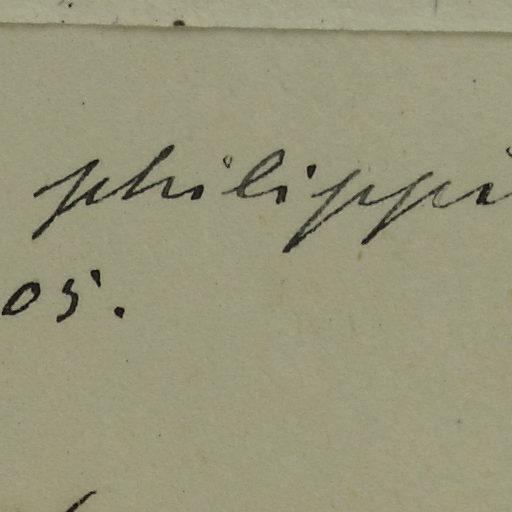 philippi
05.